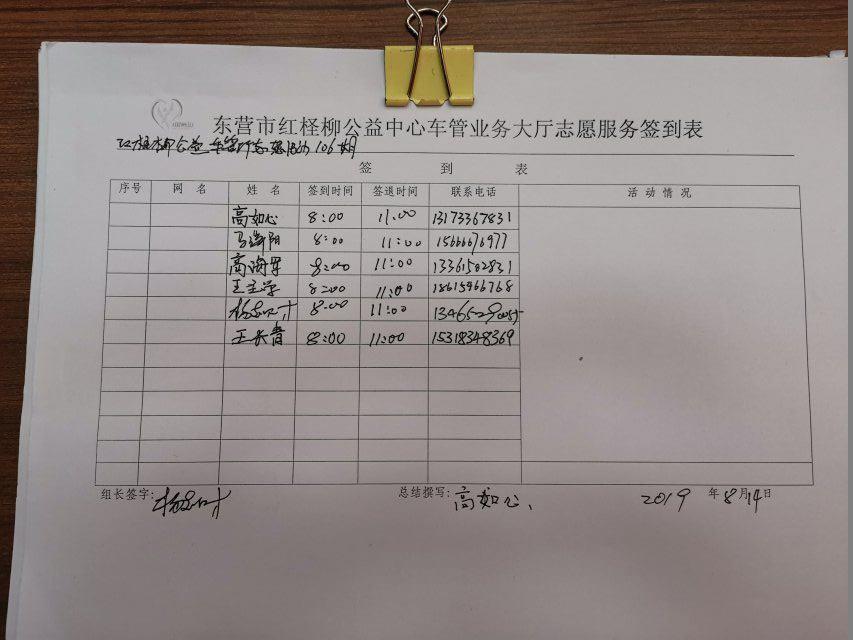 东营市红柽柳公益中心车管业务大厅志愿服务签到表
红柽柳公益车管所志愿活动106期
签 到 表
序号 网 名 姓 名 签到时间 签退时间 联系电话 活 动 情 况
高如心 8:00 11:00 13173367831
8:00 11:00 15666676977
高海军 8:00 11:00 13361502831
8:00 11:00 18615966768
8:00 11:00
王长青 8:00 11:00 15318348369
组长签字: 总结撰写: 高如心、 2019 年 8 月 14 日